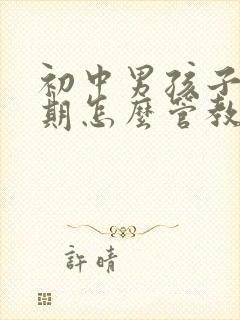 初中男孩子
期怎麼管教
許晴